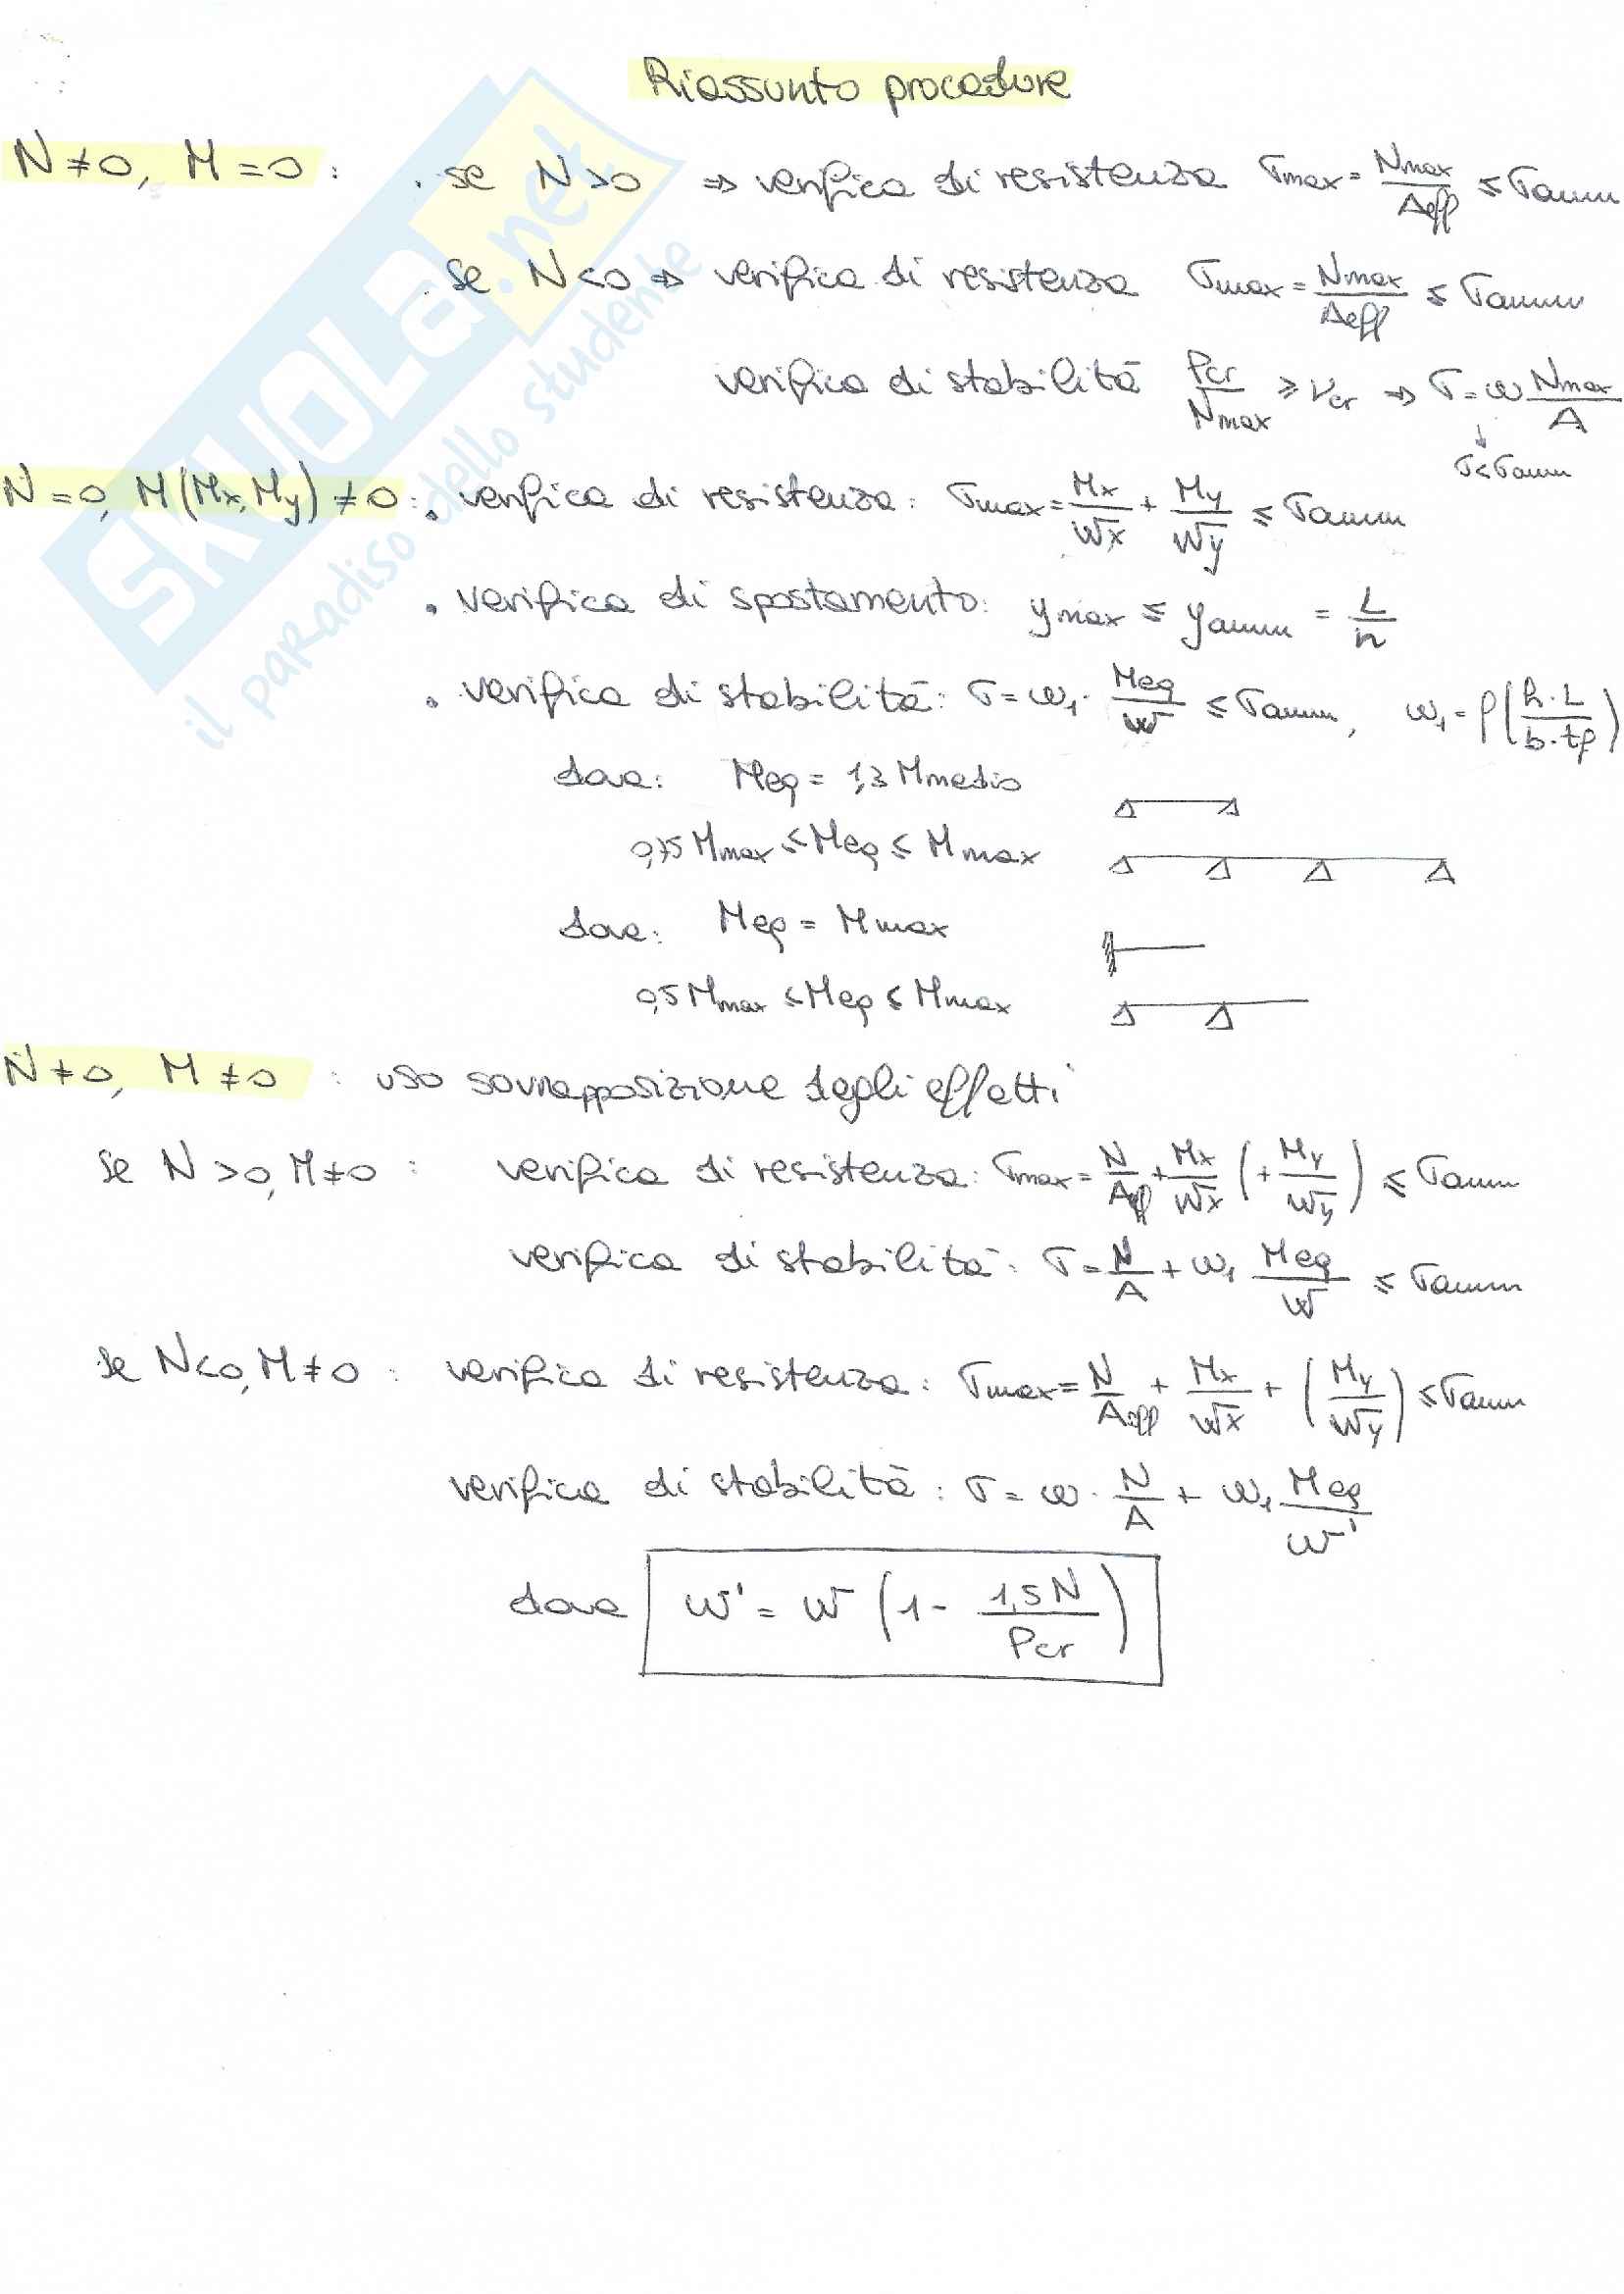 Riassunto procedure
N≠0, M=0 : . se N>0 ⇒ verifica di resistenza σmax = Nmax/Aeff ≤ σamm
. se N<0 ⇒ verifica di resistenza σmax = Nmax/Aeff ≤ σamm
verifica di stabilità Pcr/Nmax ≥ νcr ⇒ σ = ω Nmax/A
↓
σ<σamm
N=0, M(Mx,My)≠0 : . verifica di resistenza: σmax = Mx/Wx + My/Wy ≤ σamm
. verifica di spostamento: ymax ≤ yamm = L/n
. verifica di stabilità: σ = ω1 · Meq/W ≤ σamm, ω1 = f(h·L/b·tf)
dove: Meq = 1,3 Mmedio
0,75 Mmax ≤ Meq ≤ Mmax
dove: Meq = Mmax
0,5 Mmax ≤ Meq ≤ Mmax
N≠0, M≠0 : uso sovrapposizione degli effetti
se N>0, M≠0 : verifica di resistenza: σmax = N/Aeff + Mx/Wx (+ My/Wy) ≤ σamm
verifica di stabilità: σ = N/A + ω1 Meq/W ≤ σamm
se N<0, M≠0 : verifica di resistenza: σmax = N/Aeff + Mx/Wx + (My/Wy) ≤ σamm
verifica di stabilità: σ = ω · N/A + ω1 Meq/W'
dove W' = W (1 - 1,5N/Pcr)
SKUOLA.net
il paradiso dello studente